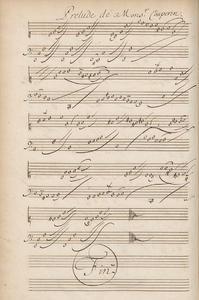 Prelude de Monsr. Couperin
Fin